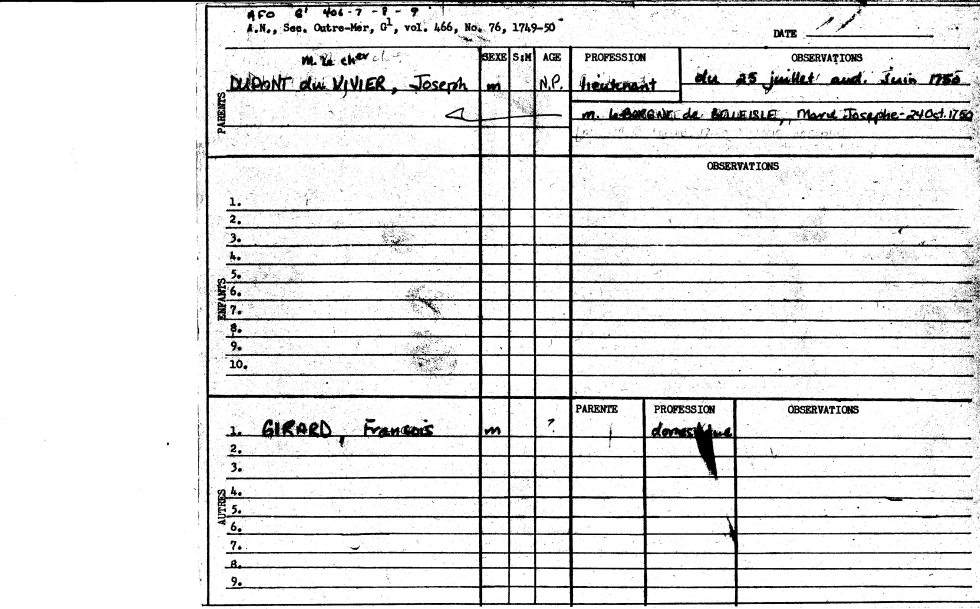 AFO G¹ 406-7-8-9
A.N., Sec. Outre-Mer, G¹, vol. 466, No. 76, 1749-50
DATE
M. le cher SEXE S:M AGE PROFESSION OBSERVATIONS
DUPONT du VIVIER, Joseph m N.P. lieutenant du 25 juillet aud. Juin 1750
PARENTS
m. LeBORGNE de BELLEISLE, Marie Josephe - 24 Oct. 1750
OBSERVATIONS
ENFANTS
1.
2.
3.
4.
5.
6.
7.
8.
9.
10.
PARENTE PROFESSION OBSERVATIONS
AUTRES
1. GIRARD, François m ? domestique
2.
3.
4.
5.
6.
7.
8.
9.